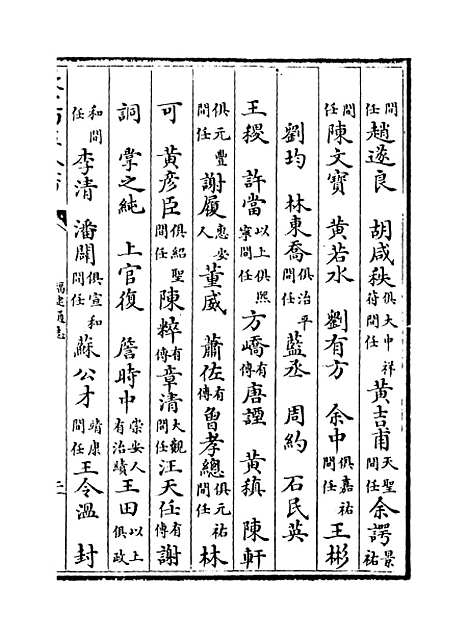 間任趙遂良 胡咸秩俱大中祥符間任黃吉甫天聖間任余諤景祐
間任陳文寶 黃若水 劉有方 余中俱嘉祐間任王彬
劉均 林東喬俱治平間任藍丞 周約 石民英
王稷 許當以上俱熙寧間任方嶠有傳唐諲 黃稹 陳軒
俱元豐間任謝履惠安人董威 蕭佐有傳魯孝總俱元祐間任林
可 黃彥臣俱紹聖間任陳粹有傳章清大觀間任汪天任有傳謝
詞 掌之純 上官復 詹時中崇安人有治績王田以上俱政
和間任李清 潘闢俱宣和間任蘇公才靖康間任王令溫 封
福建通志